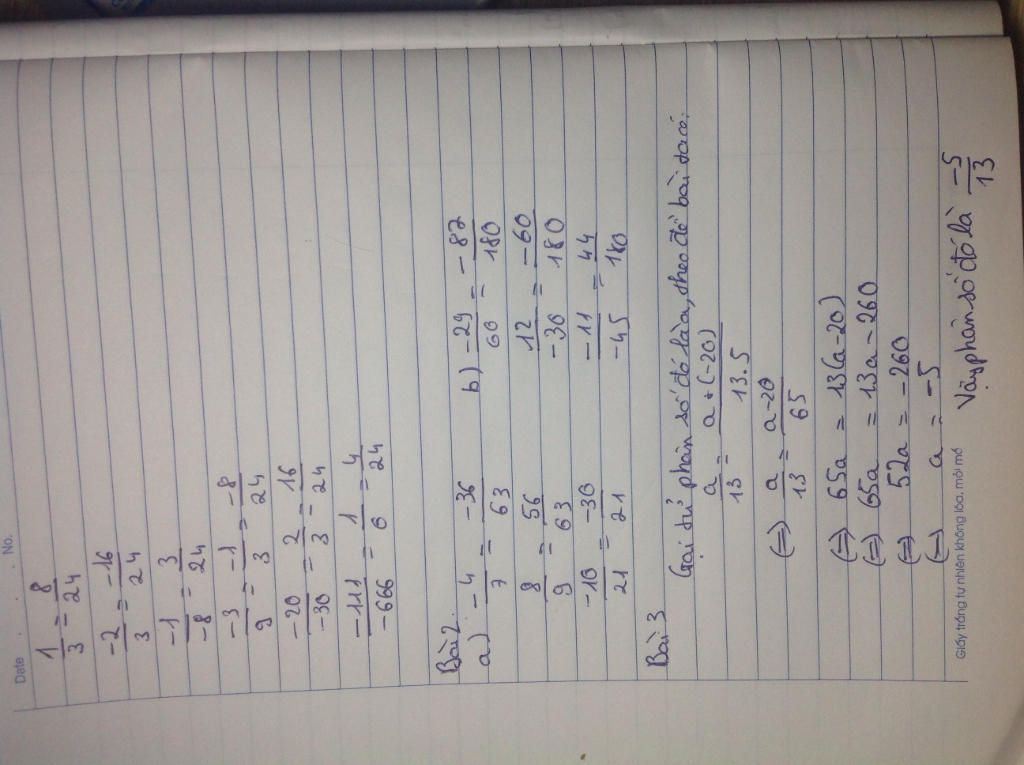 Date No.
1/3 = 8/24
-2/3 = -16/24
-1/-8 = 3/24
-3/9 = -1/3 = -8/24
-20/-30 = 2/3 = 16/24
-111/-666 = 1/6 = 4/24
Bài 2
a) -4/7 = -36/63
8/9 = 56/63
-10/21 = -30/21
b) -29/60 = -87/180
12/-30 = -60/180
-11/-45 = 44/180
Bài 3
Gọi tử phân số đó là a, theo đề bài ta có:
a/13 = a+(-20)/13.5
(=) a/13 = a-20/65
(=) 65a = 13(a-20)
(=) 65a = 13a-260
(=) 52a = -260
(=) a = -5
Vậy phân số đó là -5/13
Giấy trắng tự nhiên không lóa, mỏi mắt